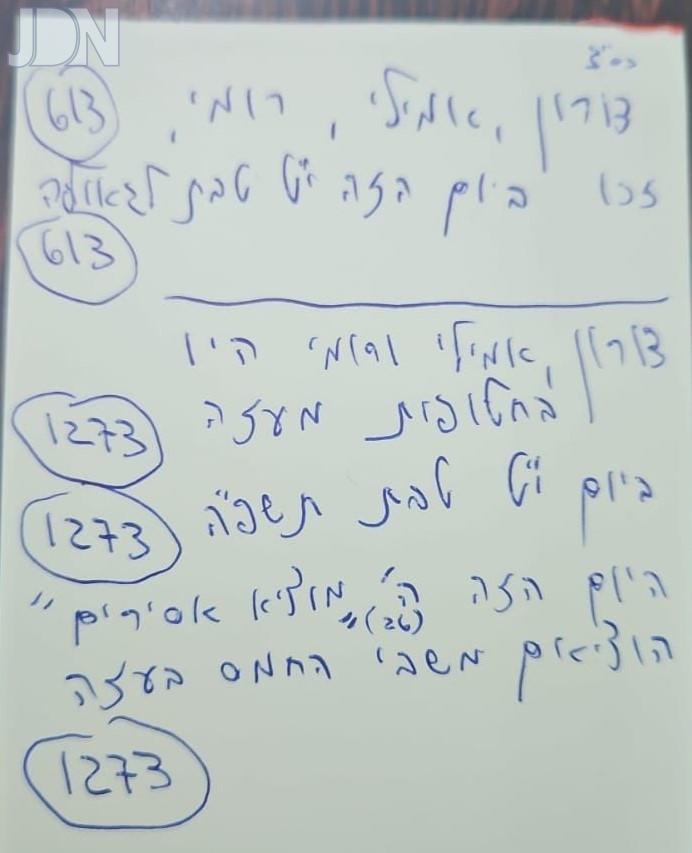 JDN
בס"ד
דורון, אמילי, רומי, 613
זכו ביום הזה י"ט טבת לגאולה
613
דורון, אמילי ורומי היו
בחטופות מעזה 1273
ביום י"ט טבת תשפ"ה 1273
היום הזה ה' (26) "מוציא אסירים"
הוציאום משבי החמס בעזה
1273